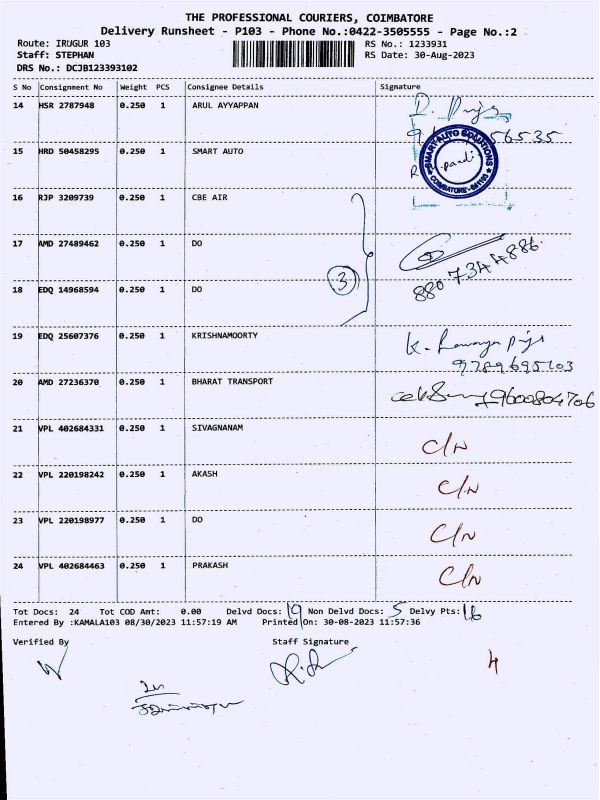 THE PROFESSIONAL COURIERS, COIMBATORE
Delivery Runsheet - P103 - Phone No.:0422-3505555 - Page No.:2
Route: IRUGUR 103 RS No.: 1233931
Staff: STEPHAN RS Date: 30-Aug-2023
DRS No.: DCJB123393102
S No Consignment No Weight PCS Consignee Details Signature
14 HSR 2787948 0.250 1 ARUL AYYAPPAN
56535
15 HRD 50458295 0.250 1 SMART AUTO
SMART AUTO SOLUTIONS
COIMBATORE
16 RJP 3209739 0.250 1 CBE AIR
17 AMD 27489462 0.250 1 DO
3
880 7344886
18 EDQ 14968594 0.250 1 DO
19 EDQ 25607376 0.250 1 KRISHNAMOORTY
9789695103
20 AMD 27236370 0.250 1 BHARAT TRANSPORT 9600804706
21 VPL 402684331 0.250 1 SIVAGNANAM C/N
22 VPL 220198242 0.250 1 AKASH C/N
23 VPL 220198977 0.250 1 DO C/N
24 VPL 402684463 0.250 1 PRAKASH C/N
Tot Docs: 24 Tot COD Amt: 0.00 Delvd Docs: 19 Non Delvd Docs: 5 Delvy Pts: 16
Entered By :KAMALA103 08/30/2023 11:57:19 AM Printed On: 30-08-2023 11:57:36
Verified By Staff Signature